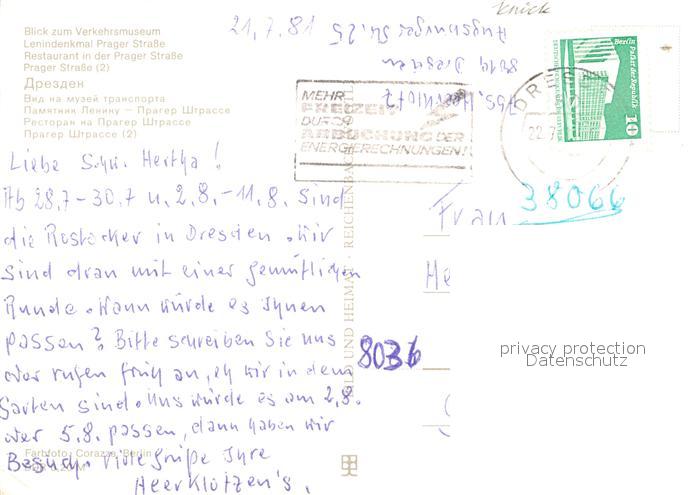 Blick zum Verkehrsmuseum
Lenindenkmal Prager Straße
Restaurant in der Prager Straße
Prager Straße (2)
Дрезден
Вид на музей транспорта
Памятник Ленину — Прагер Штрассе
Ресторан на Прагер Штрассе
Прагер Штрассе (2)
21.7.81
knick
Augsburger Str. 25
8019 Dresden
Jos. Heerklotz
Berlin Palast der Republik
10
DRESDEN
22.7
MEHR
FREIZEIT
DURCH
ABBUCHUNG DER
ENERGIERECHNUNGEN!
Liebe Schw. Hertha!
Ab 28.7-30.7 u. 2.8.-11.8. sind
die Rostocker in Dresden. Wir
sind dran mit einer gemütlichen
Runde. Wann würde es Ihnen
passen? Bitte schreiben Sie uns
oder rufen früh an, eh wir in dem
Garten sind. Uns würde es am 2.8.
oder 5.8. passen, dann haben wir
Besuch. Viele Grüße Ihre
Heerklotzen's.
Frau
38066
He
8036
BILD UND HEIMAT · REICHENBACH
privacy protection
Datenschutz
Farbfoto: Corazza, Berlin